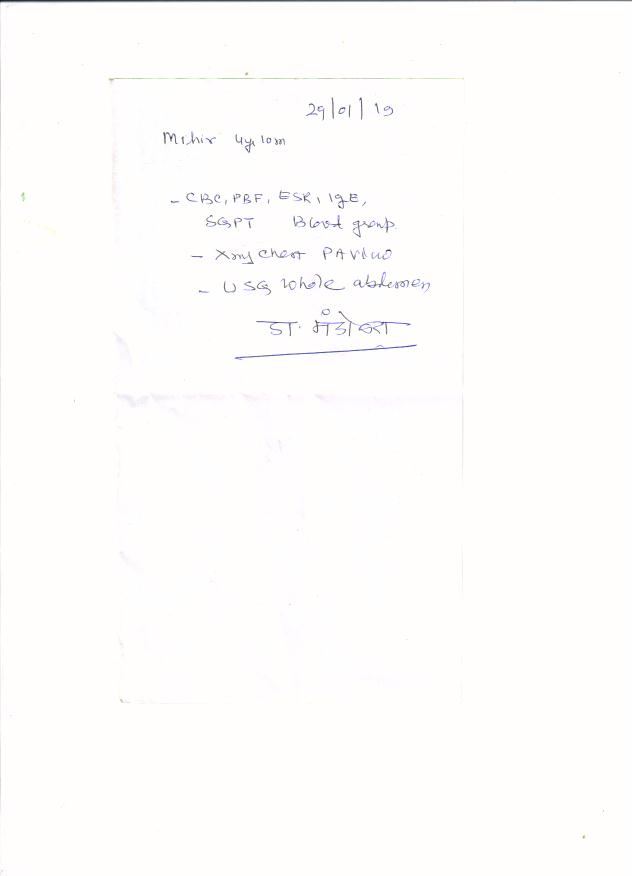 29/01/19
Mihir 4y 10m
- CBC, PBF, ESR, IgE,
SGPT Blood group
- Xray chest PA view
- USG whole abdomen
डा.